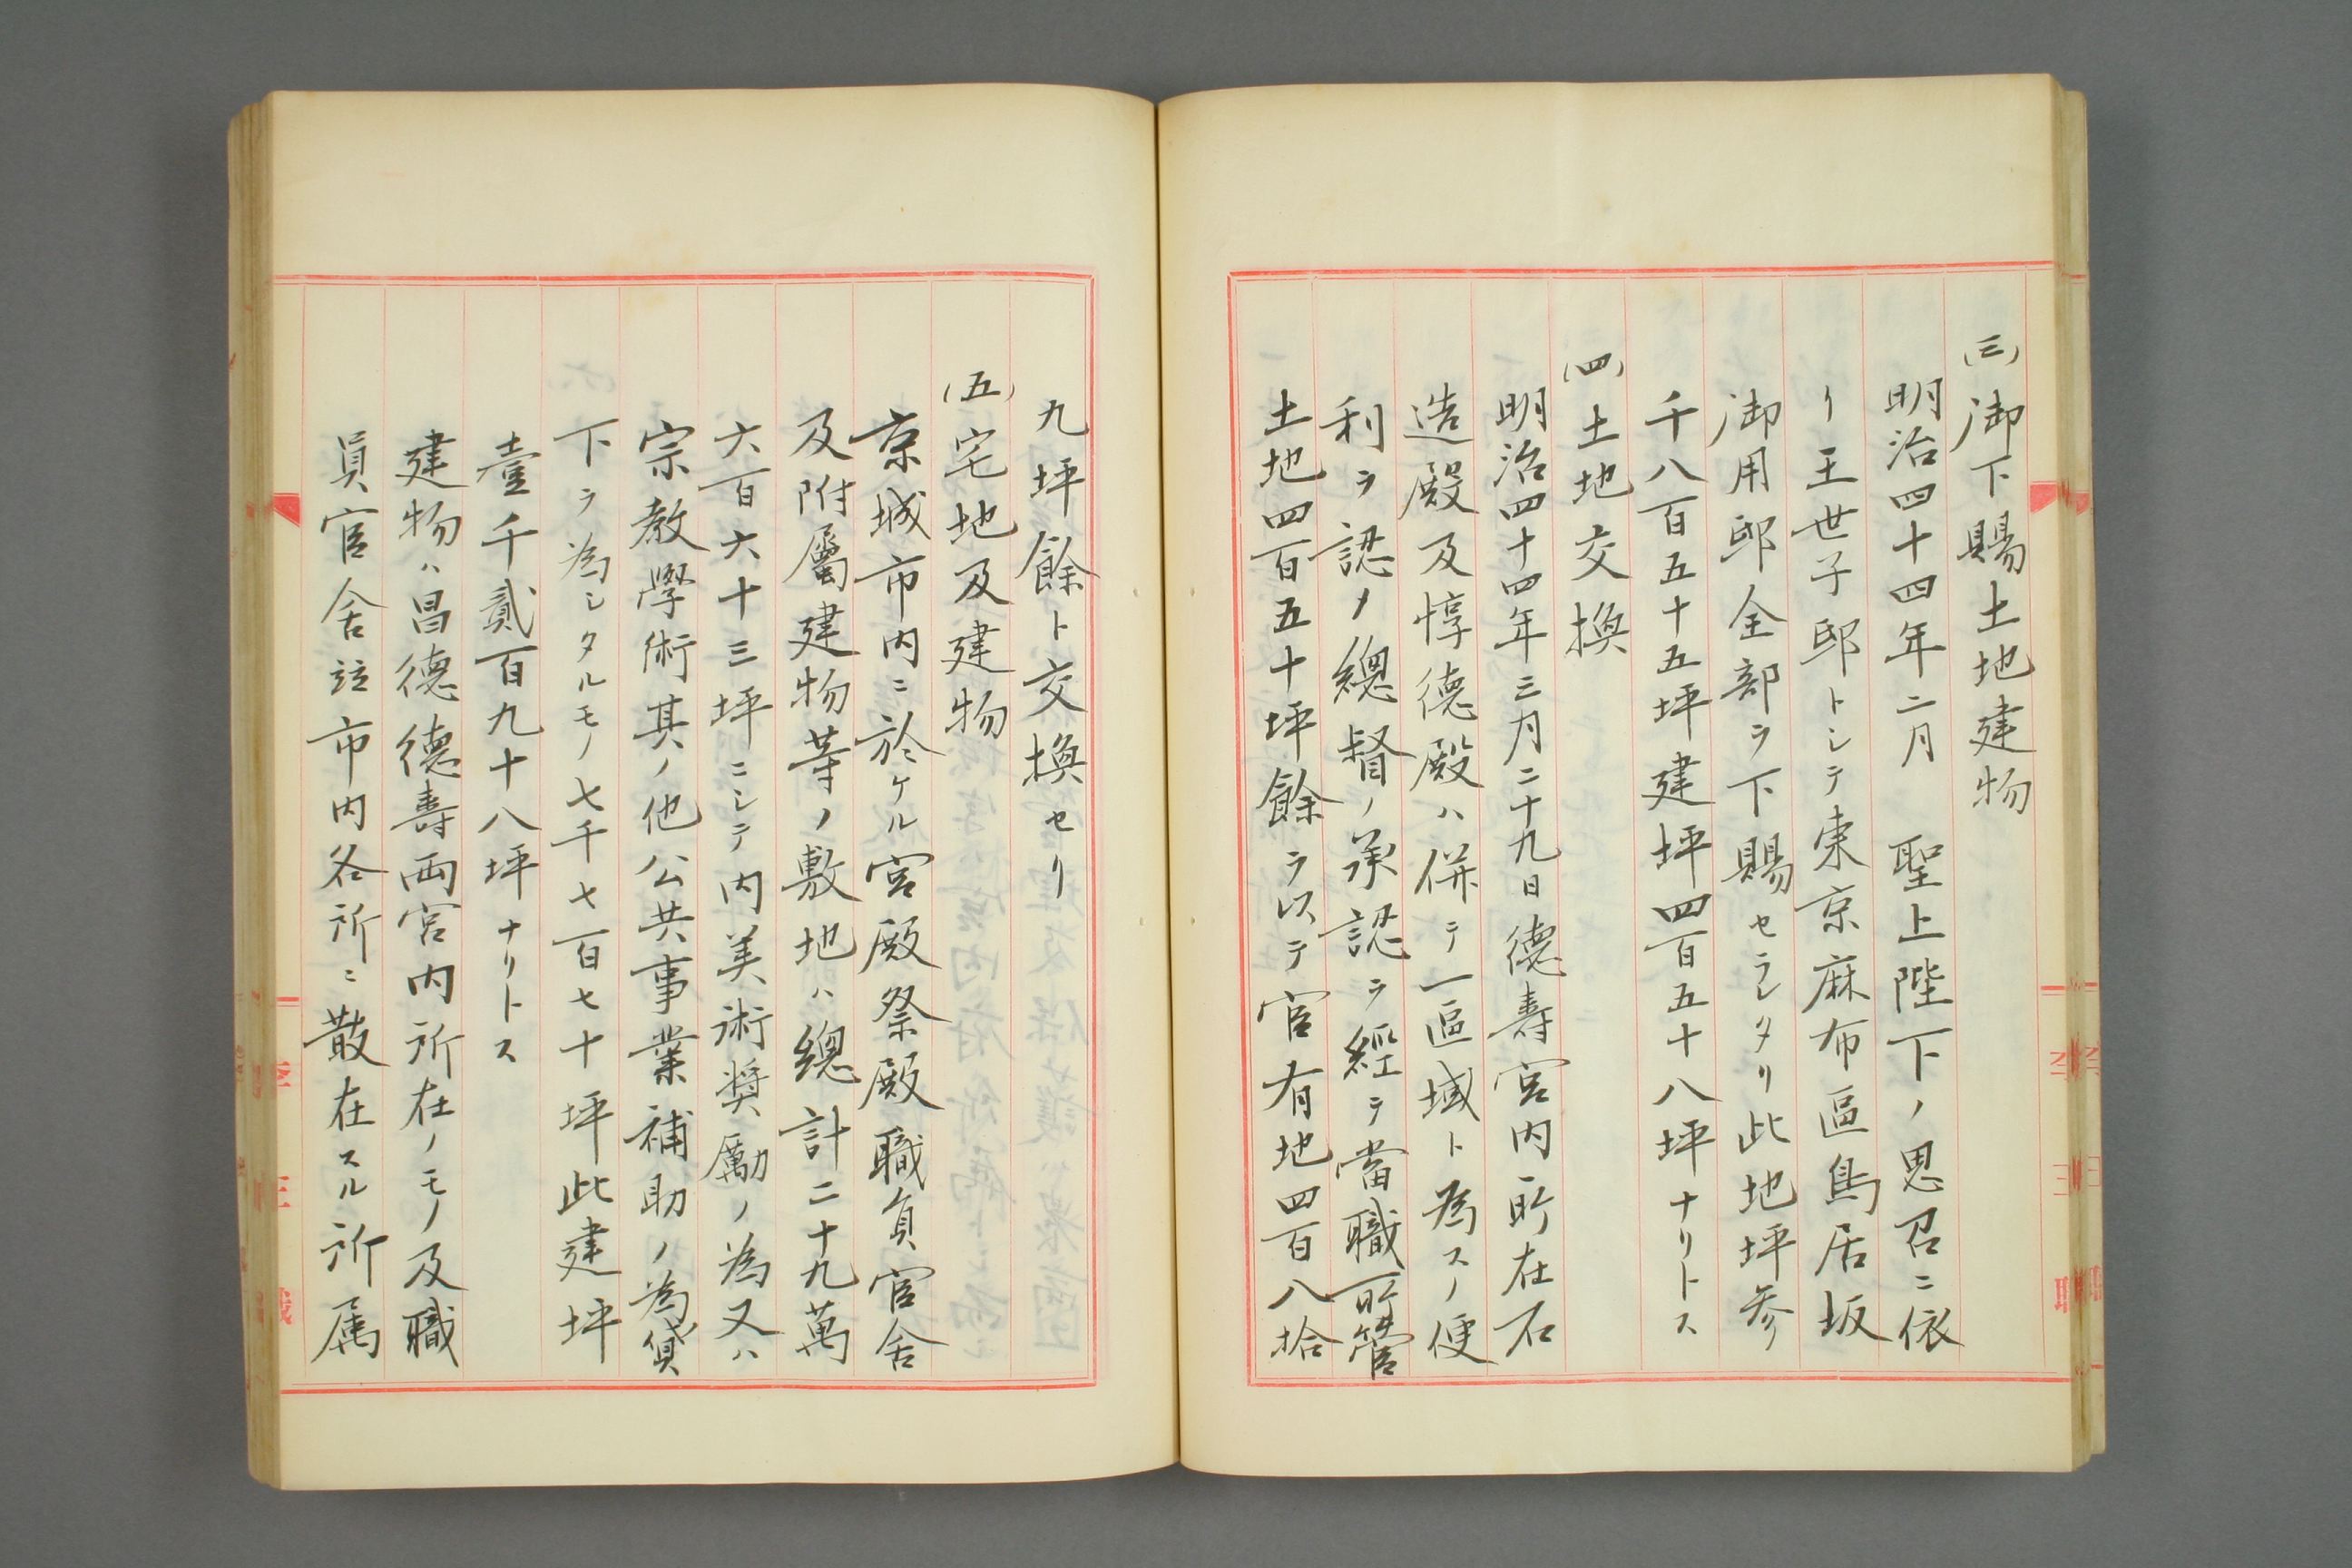 (三)御下賜土地建物
明治四十四年二月　聖上陛下ノ思召ニ依
リ王世子邸トシテ東京麻布區鳥居坂
御用邸全部ヲ下賜セラレタリ此地坪参
千八百五十五坪建坪四百五十八坪ナリトス
(四)土地交換
明治四十四年三月二十九日德壽宮内所在石
造殿及惇德殿ハ併テ一區域ト為スノ便
利ヲ認メ總督ノ承認ヲ經テ當職所管
土地四百五十坪餘ヲ以テ官有地四百八拾
九坪餘ト交換セリ
(五)宅地及建物
京城市内ニ於ケル宮殿祭殿職員官舍
及附屬建物等ノ敷地ハ總計二十九萬
六百六十三坪ニシテ内美術奬勵ノ為又ハ
宗教學術其ノ他公共事業補助ノ為貸
下ヲ為シタルモノ七千七百七十坪此建坪
壹千貳百九十八坪ナリトス
建物ハ昌德德壽両宮内所在ノモノ及職
員官舍竝市内各所ニ散在スル所属
李王職